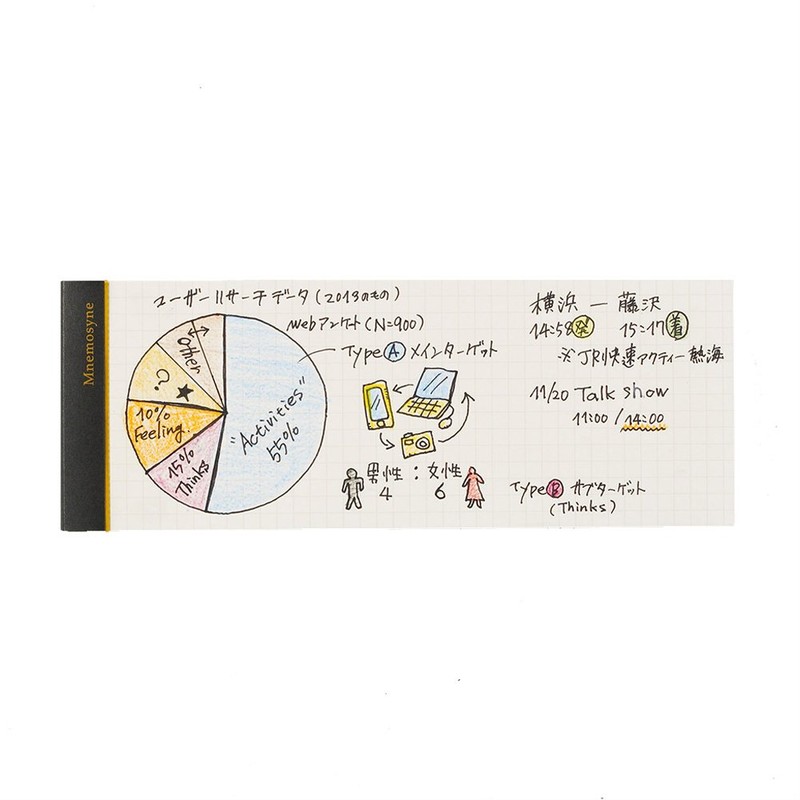 Mnemosyne
ユーザーリサーチデータ(2013のもの)
Webアンケート(N=900)
Type Ⓐ メインターゲット
other
?
10%
Feeling
15%
Thinks
"Activities"
55%
男性 : 女性
4 6
横浜 — 藤沢
14:58発 15:17着
※JR快速アクティー熱海
11/20 Talk show
11:00 / 14:00
Type Ⓑ サブターゲット
(Thinks)